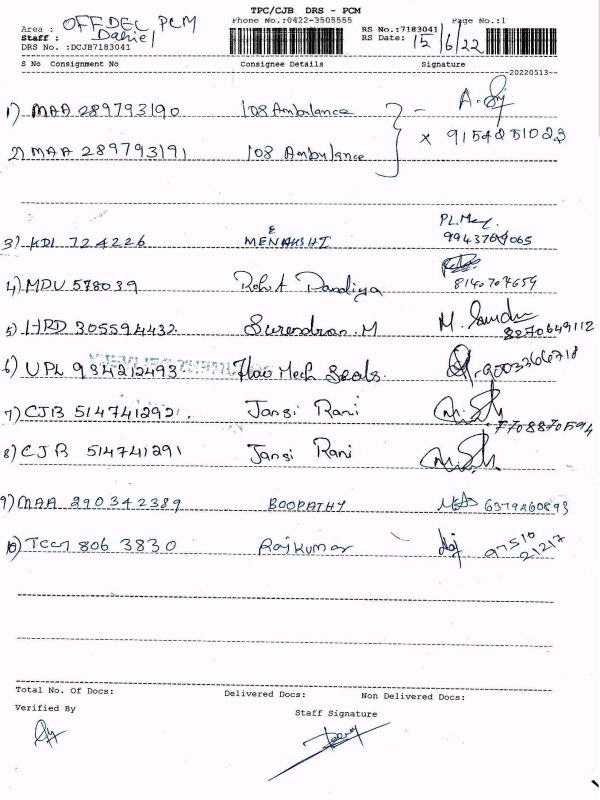 TPC/CJB DRS - PCM
Area : OFFDEL, PCM Phone No.:0422-3505555 RS No.:7183041 Page No.:1
Staff : Daniel RS Date: 15/6/22
DRS No. :DCJB7183041
S No Consignment No Consignee Details Signature
--20220513--
1) MAA 289793190 108 Ambulance - A.
x 9154251023
2) MAA 289793191 108 Ambulance
3) KDI 724226 MENAKSHI
4) MDU 578039 Rohit Pandiya 8140704659
5) HRD 305594432. Surendran. M M. 8270649112
6) UPL 934212493 Flow Mech Seals. 9003366718
7) CJB 514741292. Jansi Rani 7708870594
8) CJB 514741291 Jansi Rani
9) MAA 290342389 BOOPATHY 6379260893
10) 806 3830 Rajkumar Raj 97510
21217
Total No. Of Docs: Delivered Docs: Non Delivered Docs:
Verified By Staff Signature